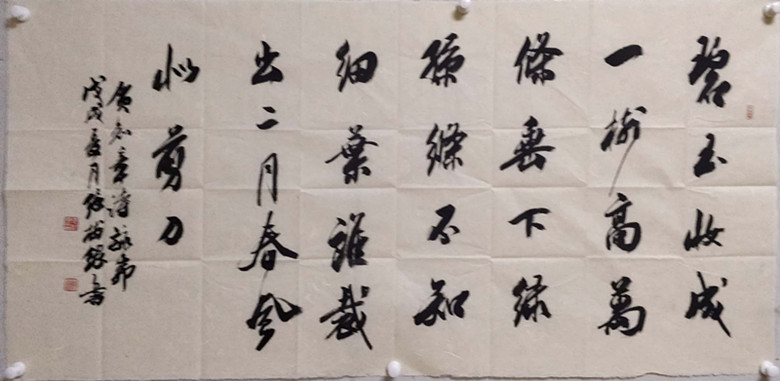 碧玉妝成
一樹高萬
條垂下緑
絲縧不知
細葉誰裁
出二月春風
似剪刀
賀知章詩詠柳
戊戌夏月張書